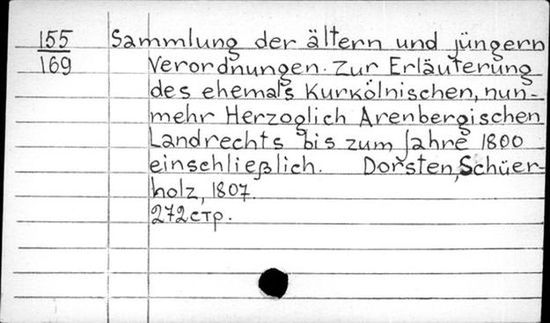 155 Sammlung der ältern und jüngern
169 Verordnungen. Zur Erläuterung
des ehemals Kurkölnischen, nun-
mehr Herzoglich Arenbergischen
Landrechts bis zum Jahre 1800
einschließlich. Dorsten, Schüer-
holz, 1807.
272 стр.